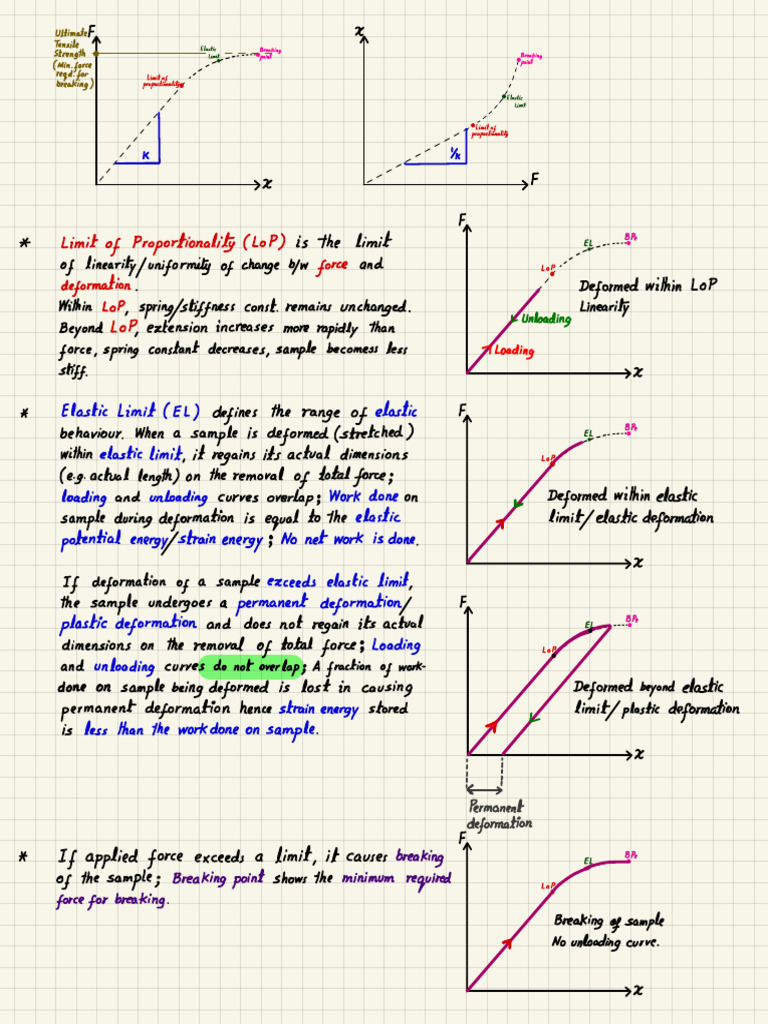 Ultimate
Tensile
Strength
(Min. force
reqd. for
breaking)
F
Elastic
limit
Breaking
point
Limit of
proportionality
K
x
x
Breaking
point
Elastic
Limit
Limit of
proportionality
1/K
F
* Limit of Proportionality (LoP) is the limit
of linearity/uniformity of change b/w force and
deformation.
Within LoP, spring/stiffness const. remains unchanged.
Beyond LoP, extension increases more rapidly than
force, spring constant decreases, sample becomess less
stiff.
F
LoP
EL
BPt
Deformed within LoP
Linearity
Unloading
Loading
x
* Elastic Limit (EL) defines the range of elastic
behaviour. When a sample is deformed (stretched)
within elastic limit, it regains its actual dimensions
(e.g. actual length) on the removal of total force;
loading and unloading curves overlap; Work done on
sample during deformation is equal to the elastic
potential energy/strain energy; No net work is done.
F
LoP
EL
BPt
Deformed within elastic
limit/elastic deformation
x
If deformation of a sample exceeds elastic limit,
the sample undergoes a permanent deformation/
plastic deformation and does not regain its actual
dimensions on the removal of total force; Loading
and unloading curves do not overlap; A fraction of work-
done on sample being deformed is lost in causing
permanent deformation hence strain energy stored
is less than the workdone on sample.
F
LoP
EL
BPt
Deformed beyond elastic
limit/plastic deformation
x
Permanent
deformation
* If applied force exceeds a limit, it causes breaking
of the sample; Breaking point shows the minimum required
force for breaking.
F
LoP
EL
BPt
Breaking of sample
No unloading curve.
x